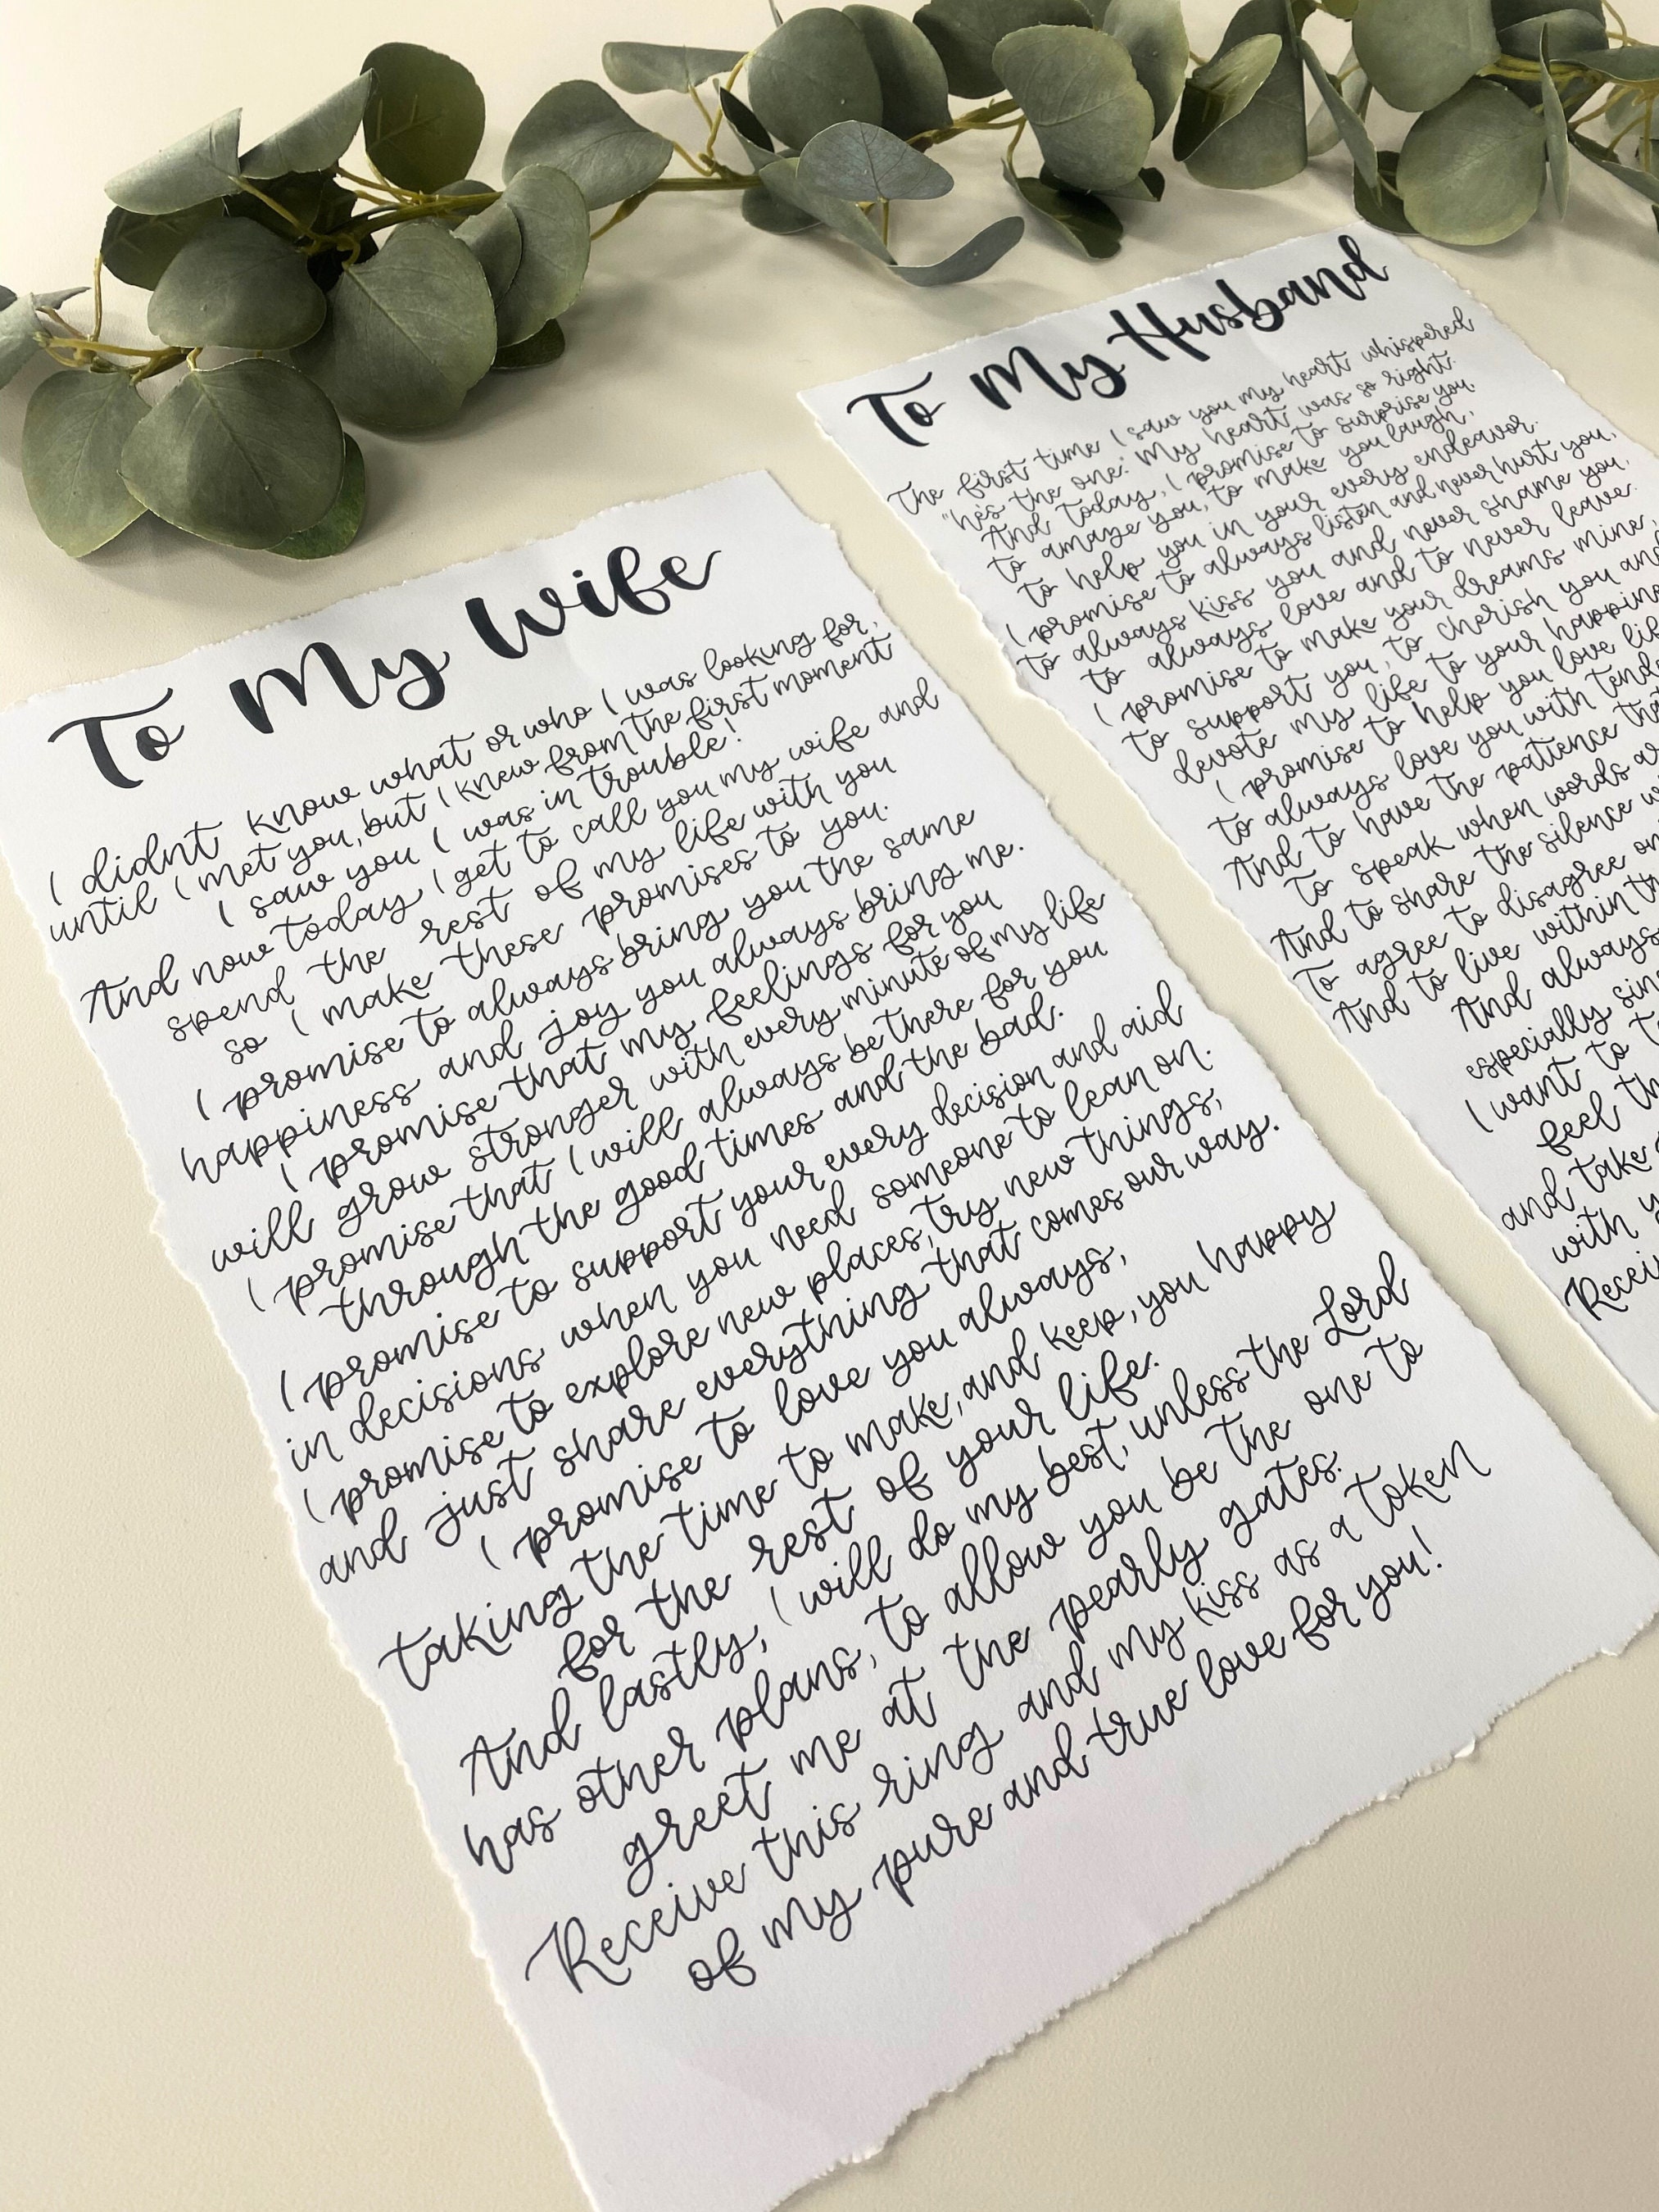 To My Wife
I didnt know what or who I was looking for,
until I met you, but I knew from the first moment
I saw you I was in trouble!
And now today I get to call you my wife and
spend the rest of my life with you
so I make these promises to you.
I promise to always bring you the same
happiness and joy you always bring me.
I promise that my feelings for you
will grow stronger with every minute of my life
I promise that I will always be there for you
through the good times and the bad.
I promise to support your every decision and aid
in decisions when you need someone to lean on.
I promise to explore new places, try new things,
and just share everything that comes our way.
I promise to love you always,
taking the time to make, and keep, you happy
for the rest of your life.
And lastly, I will do my best, unless the Lord
has other plans, to allow you be the one to
greet me at the pearly gates.
Receive this ring and my kiss as a token
of my pure and true love for you!
To My Husband
The first time I saw you my heart whispered
"he's the one." My heart was so right.
And today, I promise to surprise you
to amaze you, to make you laugh,
to help you in your every endeavor.
I promise to always listen and never hurt you,
to always kiss you and never shame you,
to always love and to never leave.
I promise to make your dreams mine,
to support you, to cherish you and
devote my life to your
I promise to help you love
to always love you with
And to have the patience
to speak when words
And to share the silence
To agree to disagree
And to live within
And always
especially
I want to
feel
and take
with